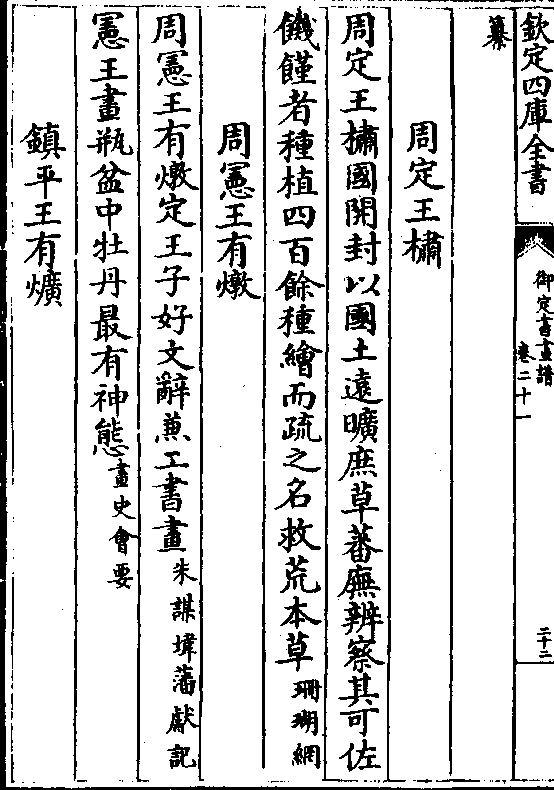 欽定四庫全書
御定書畫譜
卷二十一
二十二
纂
周定王橚
周定王橚國開封以國土遠曠庶草蕃廡辨察其可佐
饑饉者種植四百餘種繪而疏之名救荒本草珊瑚網
周憲王有燉
周憲王有燉定王子好文辭兼工書畫朱謀㙔藩獻記
憲王畫瓶盆中牡丹最有神態畫史會要
鎮平王有爌